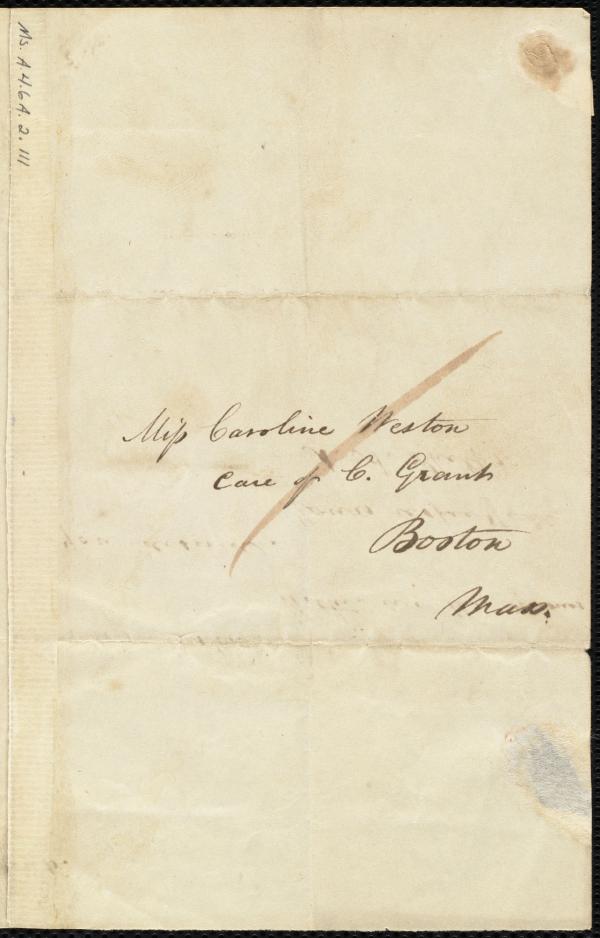 Ms. A.4.6A.2.111
Miss Caroline Weston
Care of C. Grant
Boston
Mass.